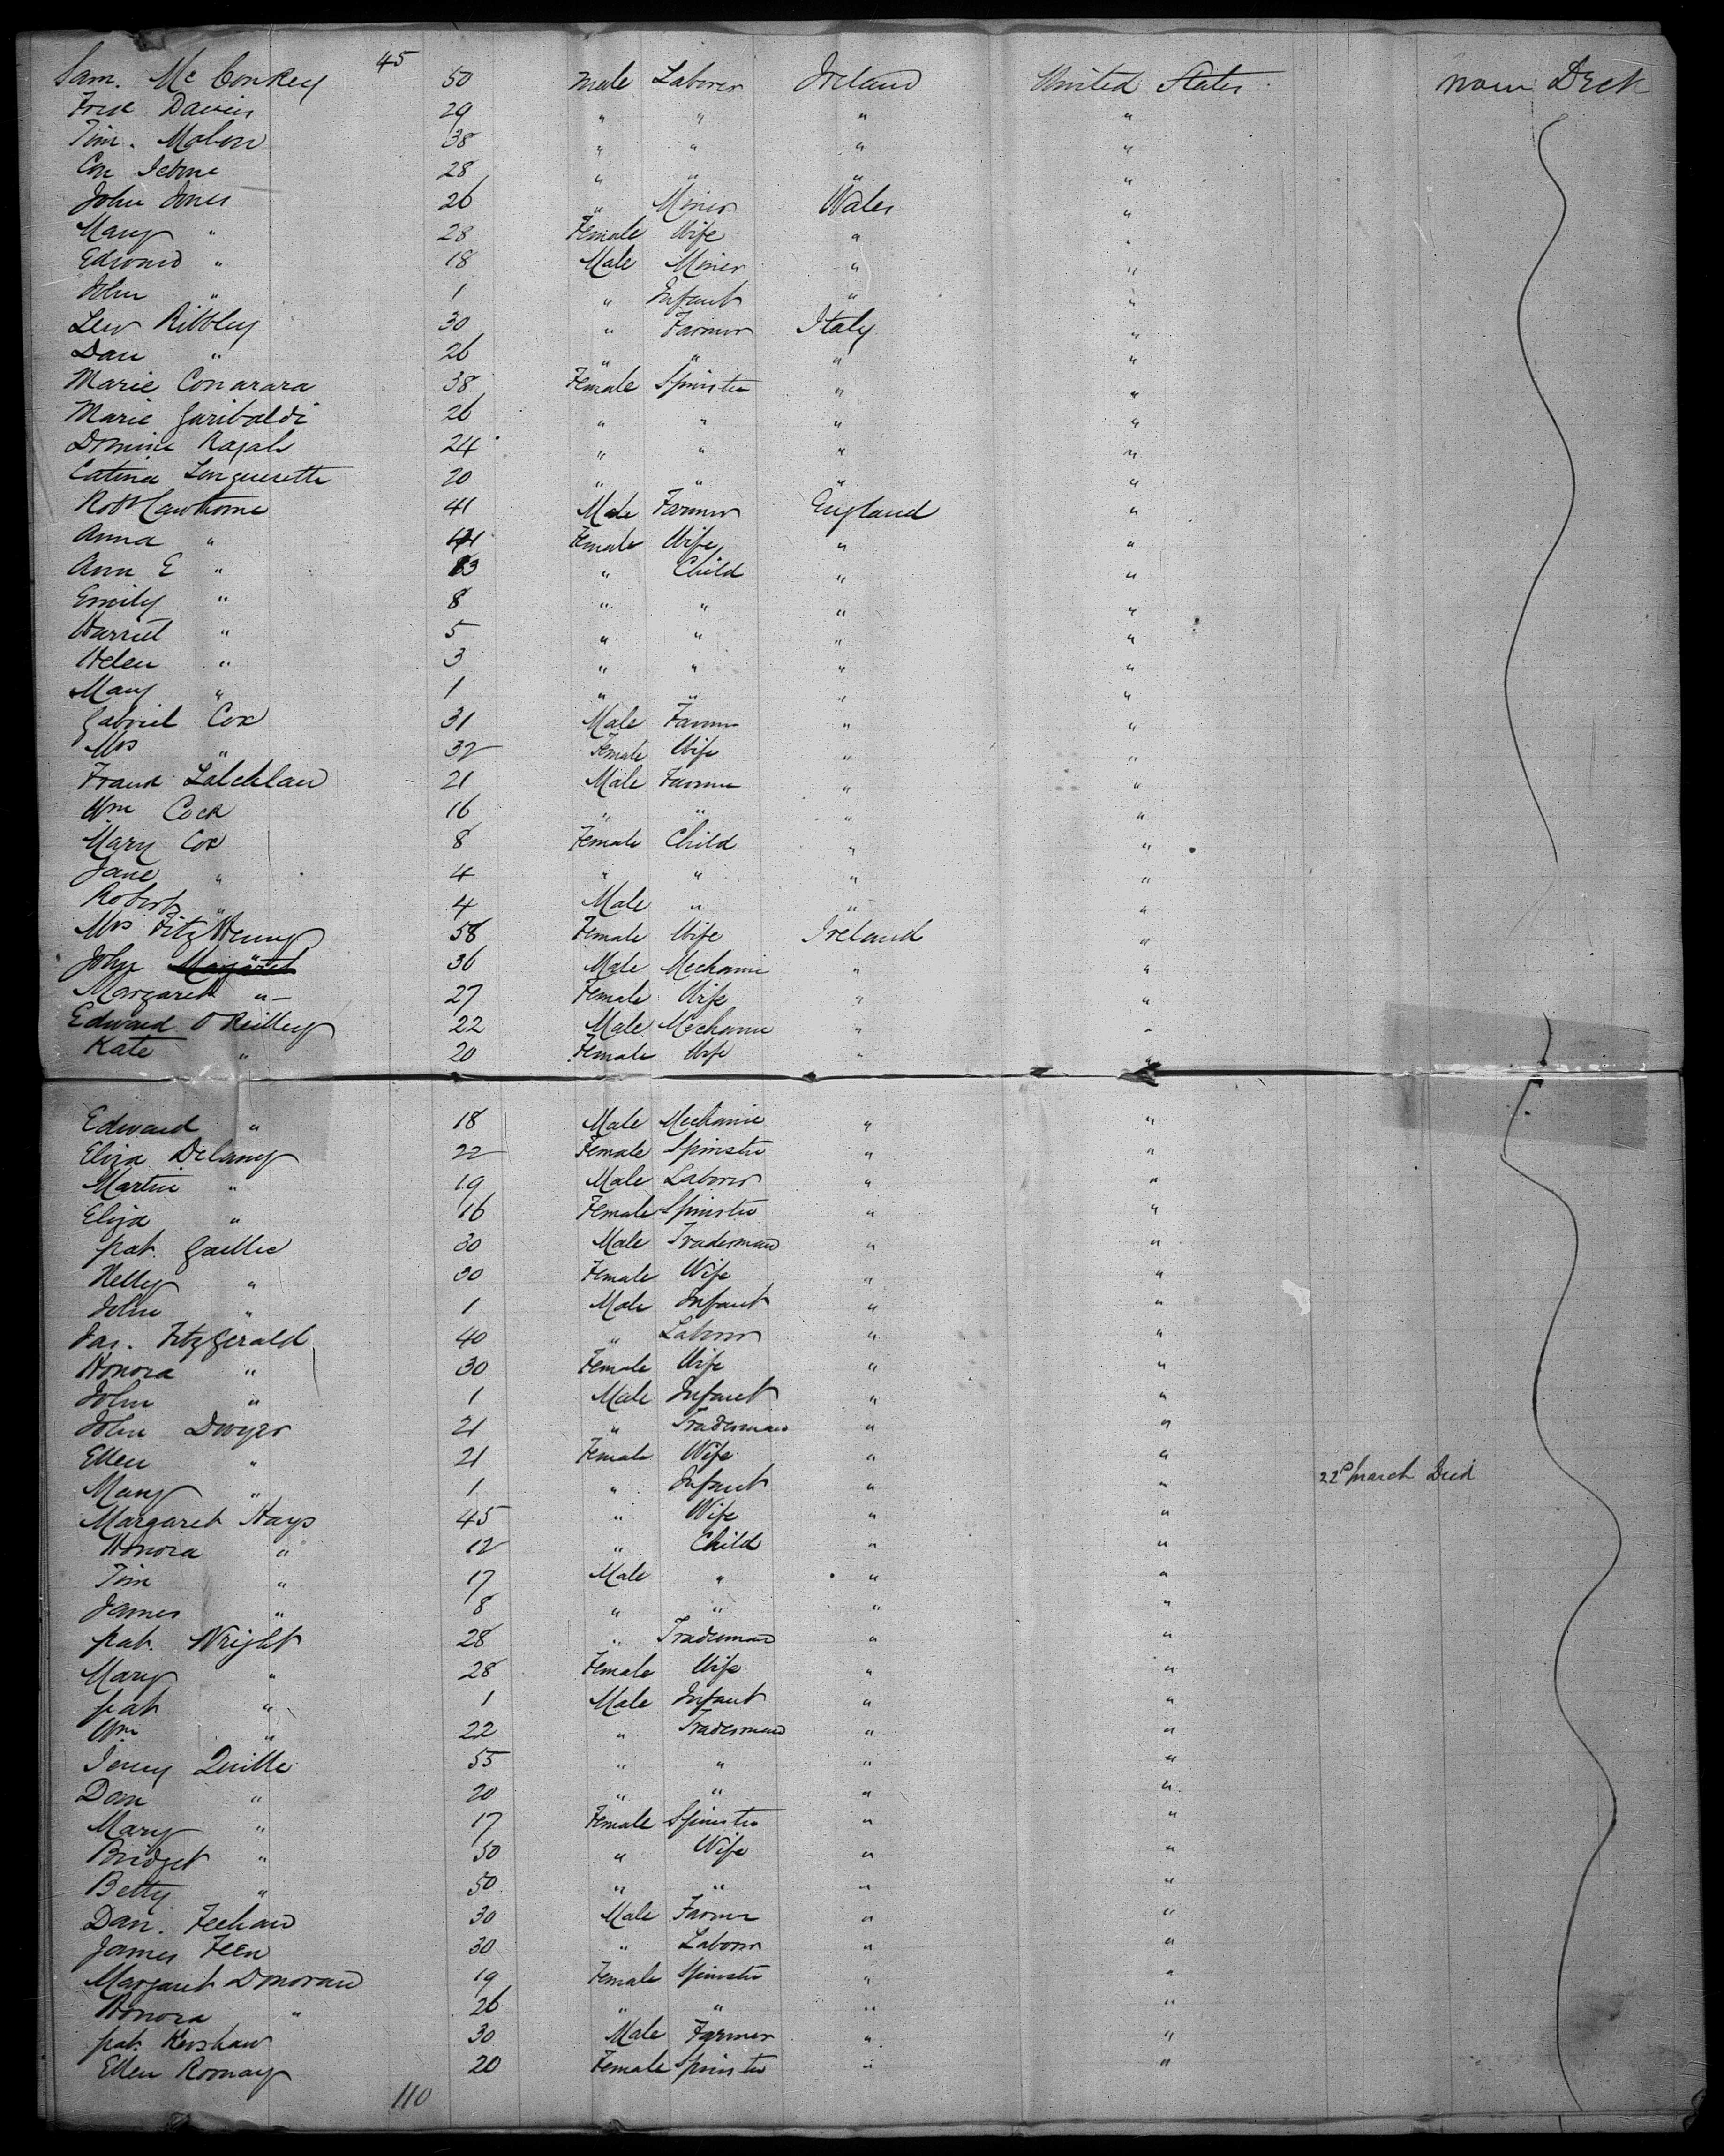 45
Sam. Mc Conkey 50 Male Laborer Ireland United States Main Deck
Fred Davis 29 " " " "
Tim. Mabon 38 " " " "
Con 28 " " " "
John Jones 26 " Miner Wales "
Mary " 28 Female Wife " "
Edward " 18 Male Miner " "
John " 1 " Infant " "
Lew Ribbley 30 " Farmer Italy "
Dan " 26 " " " "
Marie Conarara 38 Female Spinster " "
Marie Garibaldi 26 " " " "
24 " " " "
Catina 20 " " " "
Robt Cawthorne 41 Male Farmer England "
Anna " 41 Female Wife " "
Ann E " 13 " Child " "
Emily " 8 " " " "
Harriet " 5 " " " "
Helen " 3 " " " "
Mary " 1 " " " "
Gabriel Cox 31 Male Farmer " "
Mrs " 32 Female Wife " "
Frank 21 Male Farmer " "
Wm Cock 16 " " " "
Mary Cox 8 Female Child " "
Jane " 4 " " " "
Robert " 4 Male " " "
Mrs FitzHenry 58 Female Wife Ireland "
John Margaret " 36 Male Mechanic " "
Margaret " 27 Female Wife " "
Edward O Reilley 22 Male Mechanic " "
Kate " 20 Female Wife " "
Edward " 18 Male Mechanic " "
Eliza Delany 22 Female Spinster " "
Martin " 19 Male Laborer " "
Eliza " 16 Female Spinster " "
pat. 30 Male Tradesman " "
Nelly " 30 Female Wife " "
John " 1 Male Infant " "
Jas. Fitzgerald 40 " Laborer " "
Honora " 30 Female Wife " "
John " 1 Male Infant " "
John Dwyer 21 " Tradesman " "
Ellen " 21 Female Wife " "
Mary " 1 " Infant " " 22d March Died
Margaret Hays 45 " Wife " "
Honora " 12 " Child " "
Tim " 17 Male " " "
James " 8 " " " "
pat. Wright 28 " Tradesman " "
Mary " 28 Female Wife " "
pat " 1 Male Infant " "
Wm " 22 " Tradesman " "
Quille 55 " " " "
Dan " 20 " " " "
Mary " 17 Female Spinster " "
Bridget " 50 " Wife " "
Betty " 50 " " " "
Dan. Feehan 30 Male Farmer " "
James Feen 30 " Laborer " "
Margaret Donovan 19 Female Spinster " "
Honora " 26 " " " "
pat. Kershaw 30 Male Farmer " "
Ellen Romay 20 Female Spinster " "
110